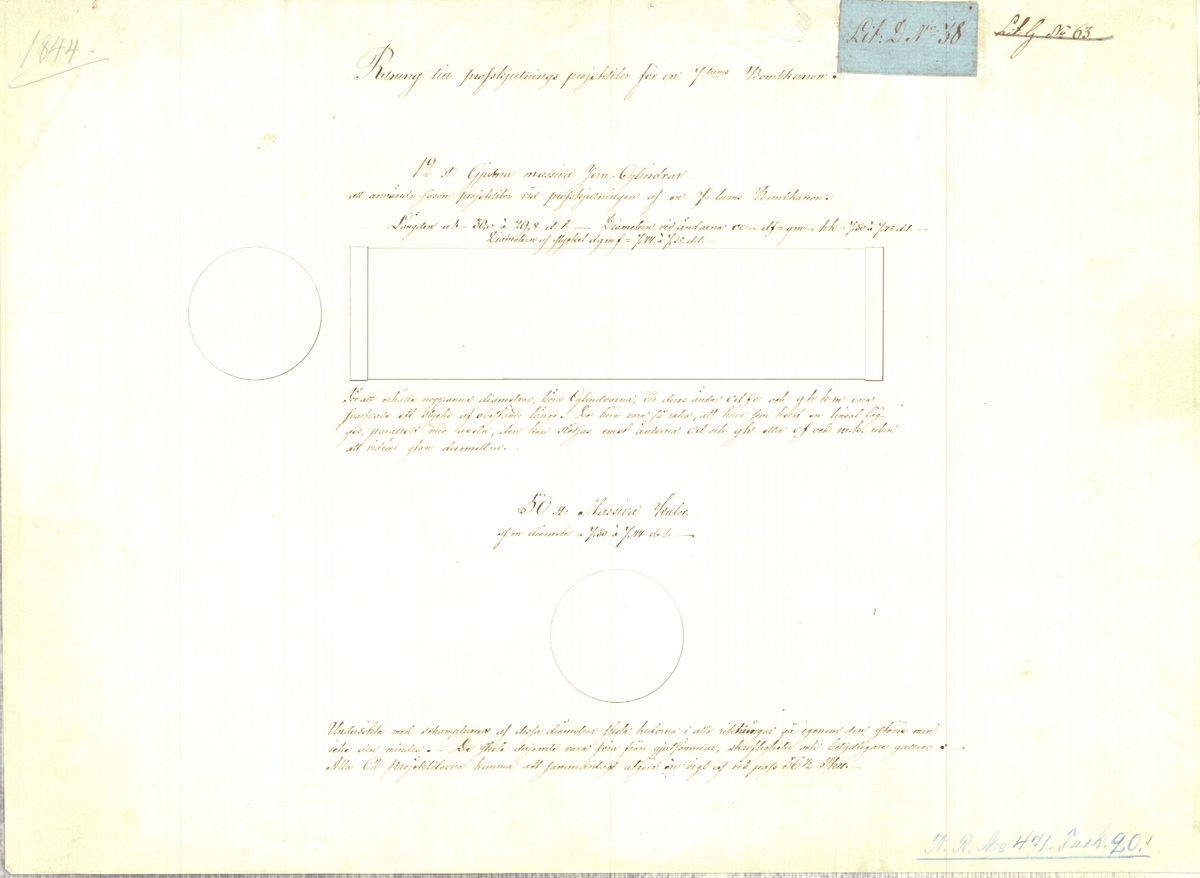 1844.
Lit: D No 38
Lit G No 63
Ritning till profskjutnings projektiler för en 7 tums Bombkanon.
12 st: Gjutna massiva Jern-Cylindrar
att använda såsom projektiler vid profskjutningen af en 7 tums Bombkanon.
Längden ab = 30,0 à 29,8 d.t. — Diametern vid ändarna ce = df = gm = hk = 7,50 à 7,45 d.t. —
Diametern af stycket dgmf = 7,44 à 7,35 d.t. —
För att erhålla noggranna diametrar, böra Cylindrarna, vid deras ändar cdfe och ghkm vara
ett stycke af obestämd längd. De böra vara så raka, att hvar som helst en lineal läg-
ges, parallelt med axeln, den kan stödjas emot ändarna cd och gh eller ef och mk. utan
att vidröra ytan deremellan. —
50 st: Massiva Kulor.
af en diameter = 7,50 à 7,44 d.t. —
Undersökta med schamploner af dessa diametrar skola kulorna i alla riktningar gå igenom den större men
icke den mindre. — De skola derjemte vara fria från gjutsömmar, skroflighet och betydligare gallor. —
Alla Projektilerna komma att sammanlagt utgöra en vigt af vid pass 36½ —
K. R. No 471. Fack. 20.